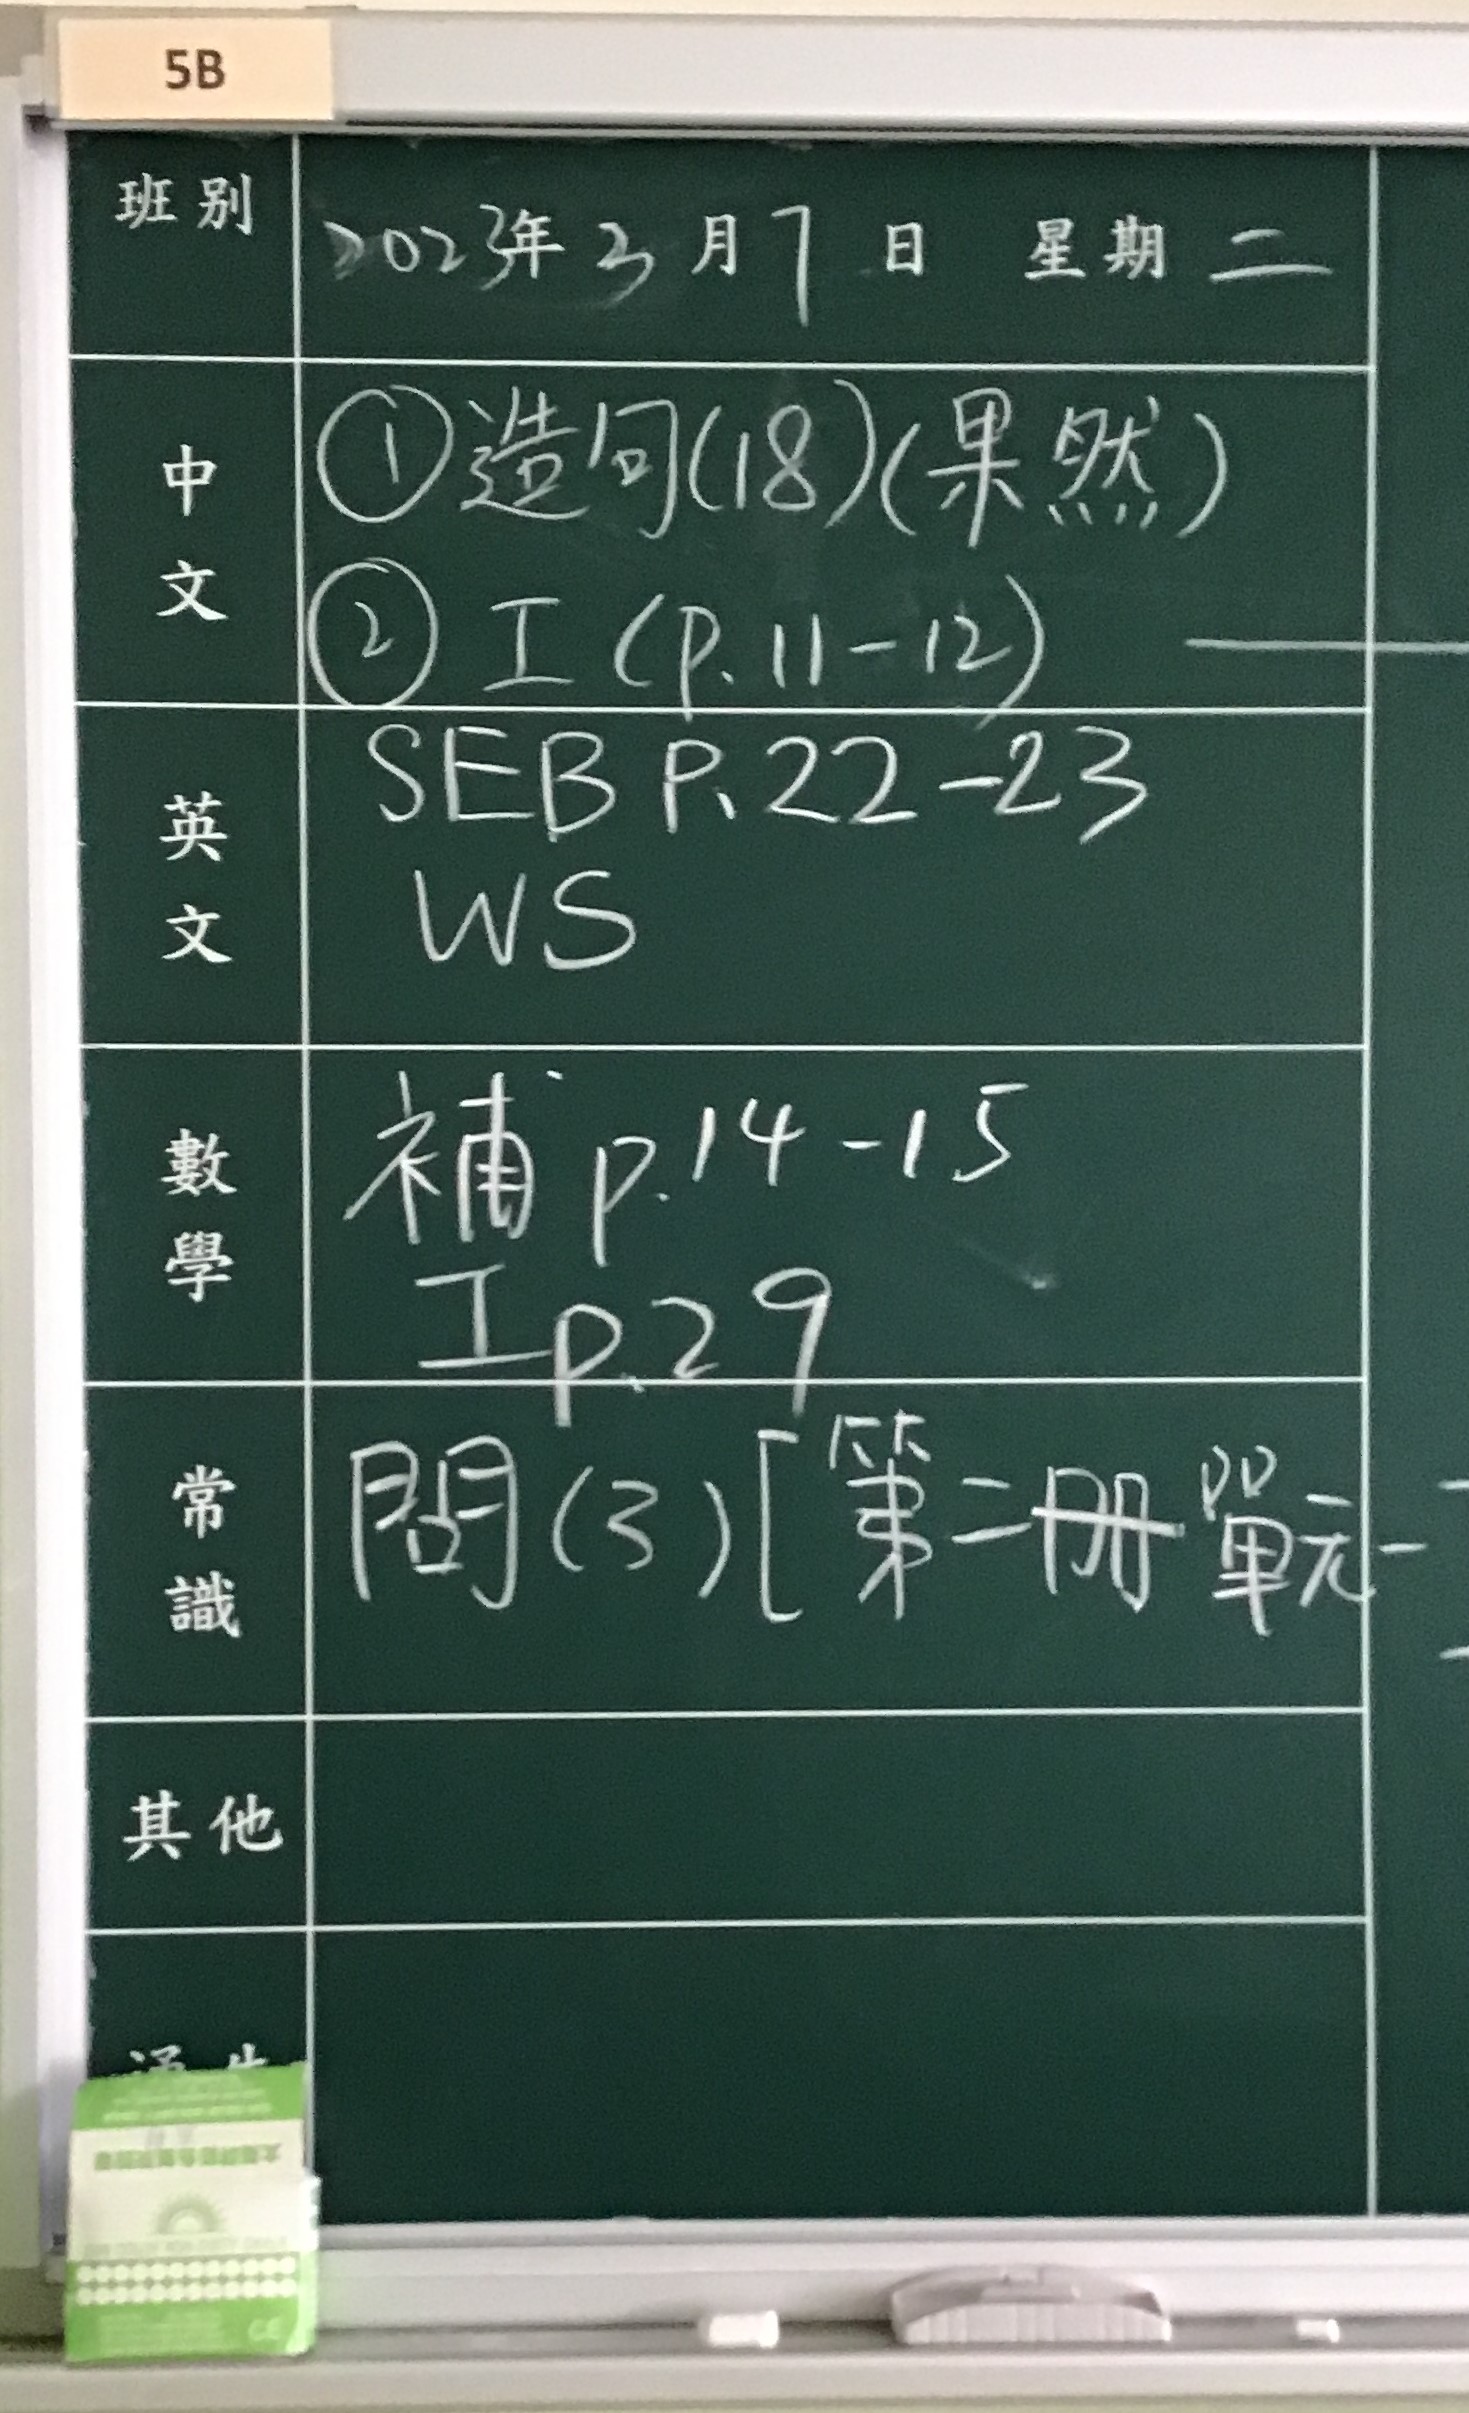 5B
班別
2023年3月7日 星期二
中文
①造句(18)(果然)
②工(p.11-12)
英文
SEB P.22-23
WS
數學
補 p.14-15
工p.29
常識
問(3)[第二冊單元一
其他